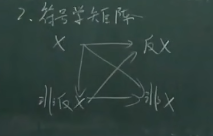 2、符号学矩阵
X 反X
非反X 非X